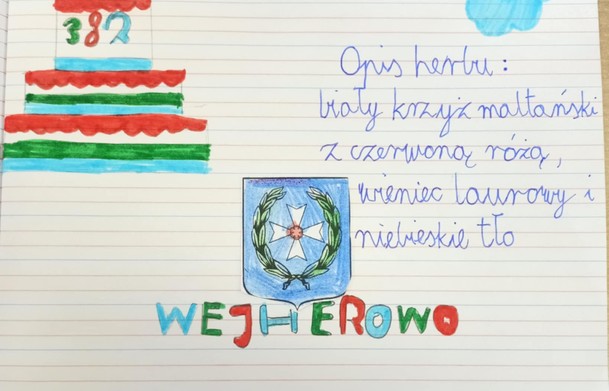 382
Opis herbu:
biały krzyż maltański
z czerwoną różą,
wieniec laurowy i
niebieskie tło
WEJHEROWO